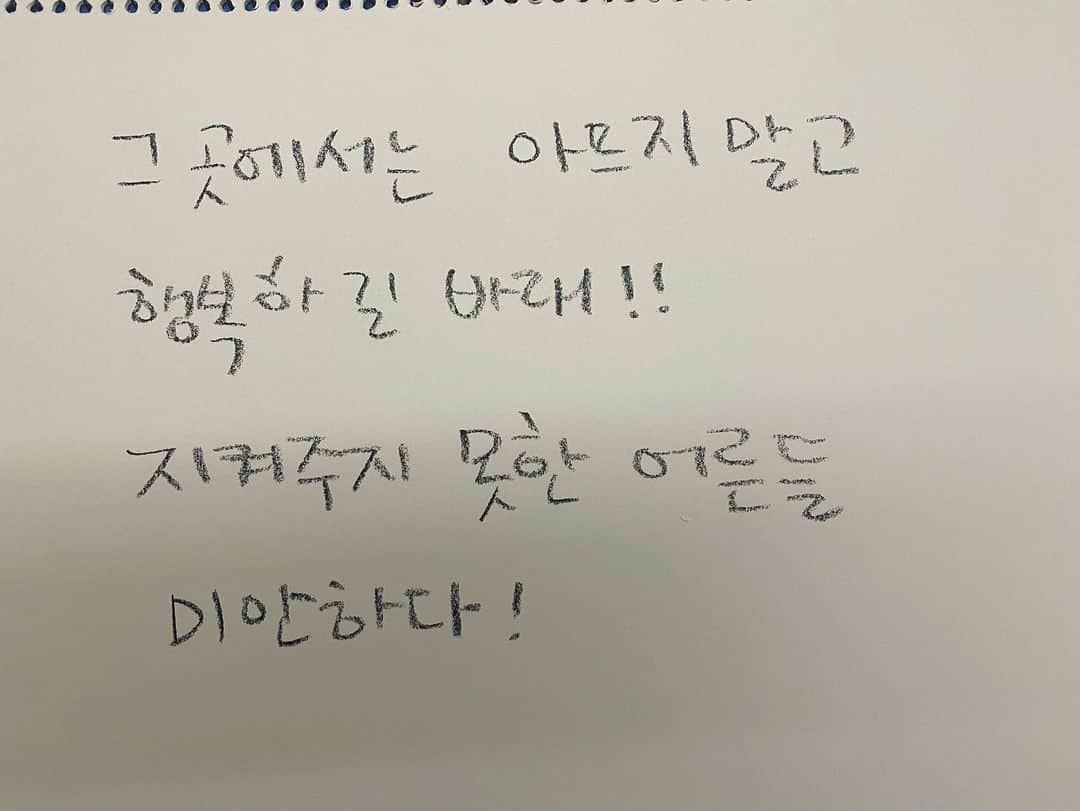 그 곳에서는 아프지 말고
행복하길 바래!!
지켜주지 못한 어른들
미안하다!